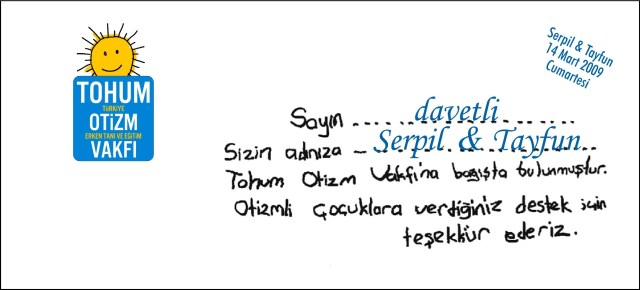 TOHUM
TÜRKİYE
OTİZM
ERKEN TANI VE EĞİTİM
VAKFI
Serpil & Tayfun
14 Mart 2009
Cumartesi
Sayın .... davetli ....
Sizin adınıza Serpil & Tayfun
Tohum Otizm Vakfı'na bağışta bulunmuştur.
Otizmli Çocuklara verdiğiniz destek için
teşekkür ederiz.